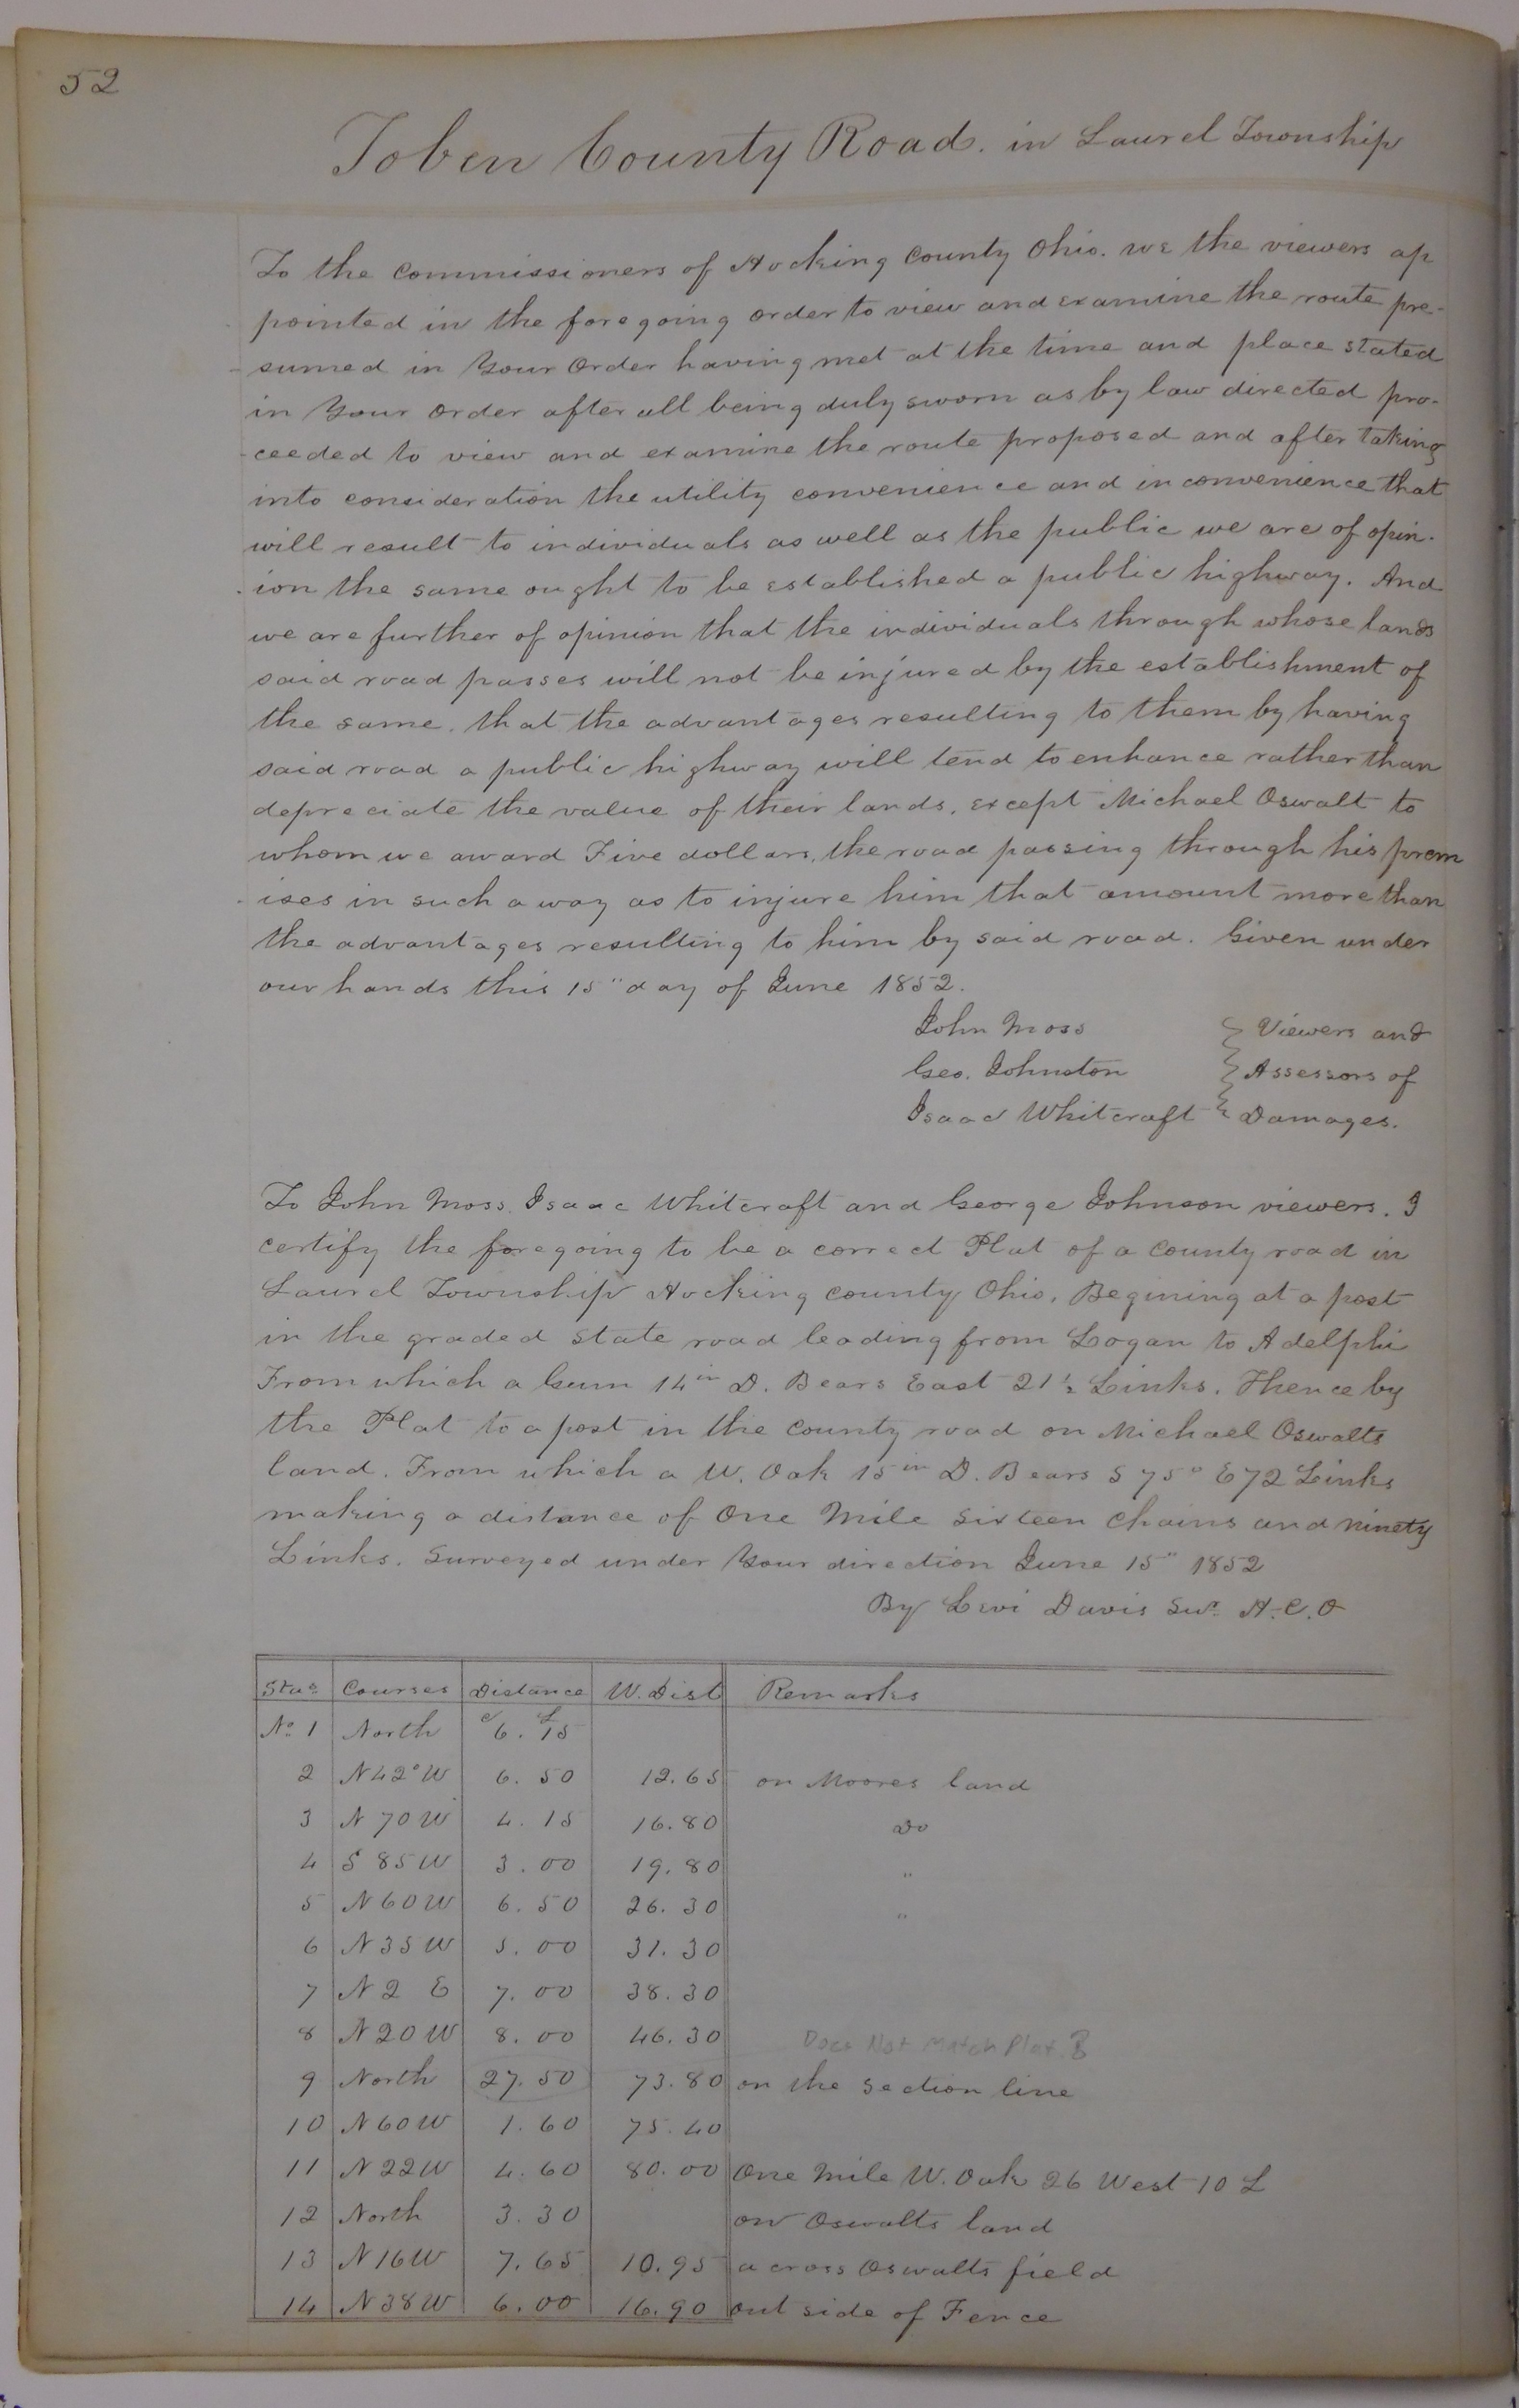 52
Toben County Road. in Laurel Township
To the commissioners of Hocking County Ohio. we the viewers ap
pointed in the foregoing order to view and examine the route pre-
sumed in Your Order having met at the time and place stated
in Your order after all being duly sworn as by law directed pro-
ceeded to view and examine the route proposed and after taking
into consideration the utility convenience and inconvenience that
will result to individuals as well as the public we are of opin-
-ion the same ought to be established a public highway. And
we are further of opinion that the individuals through whose lands
said road passes will not be injured by the establishment of
the same, that the advantages resulting to them by having
said road a public highway will tend to enhance rather than
depreciate the value of their lands, except Michael Oswalt to
whom we award Five dollars, the road passing through his prem
-ises in such a way as to injure him that amount more than
the advantages resulting to him by said road. Given under
our hands this 15" day of June 1852.
John Moss } Viewers and
Geo. Johnston } Assessors of
Isaac Whitcraft } Damages.
To John Moss, Isaac Whitcraft and George Johnson viewers. I
certify the foregoing to be a correct Plat of a county road in
Laurel Township Hocking county Ohio, Begining at a post
in the graded state road leading from Logan to Adelphi
From which a Gum 14 in D. Bears East 21½ Links. Thence by
the Plat to a post in the county road on Michael Oswalts
land. From which a W. Oak 15 in D. Bears S 75° E 72 Links
making a distance of One Mile Sixteen Chains and ninety
Links. Surveyed under Your direction June 15" 1852
By Levi Davis Sur. H.C.O
Stas Courses Distance W. Dist Remarks
No 1 North C 6. L 15
2 N 42° W 6.50 12.65 on Moores land
3 N 70 W 4.15 16.80 Do
4 S 85 W 3.00 19.80 "
5 N 60 W 6.50 26.30 "
6 N 35 W 5.00 31.30
7 N 2 E 7.00 38.30
8 N 20 W 8.00 46.30 Does Not Match Plat B
9 North 27.50 73.80 on the section line
10 N 60 W 1.60 75.40
11 N 22 W 4.60 80.00 One Mile W. Oak 26 West 10 L
12 North 3.30 on Oswalts land
13 N 16 W 7.65 10.95 across Oswalts field
14 N 38 W 6.00 16.90 out side of Fence